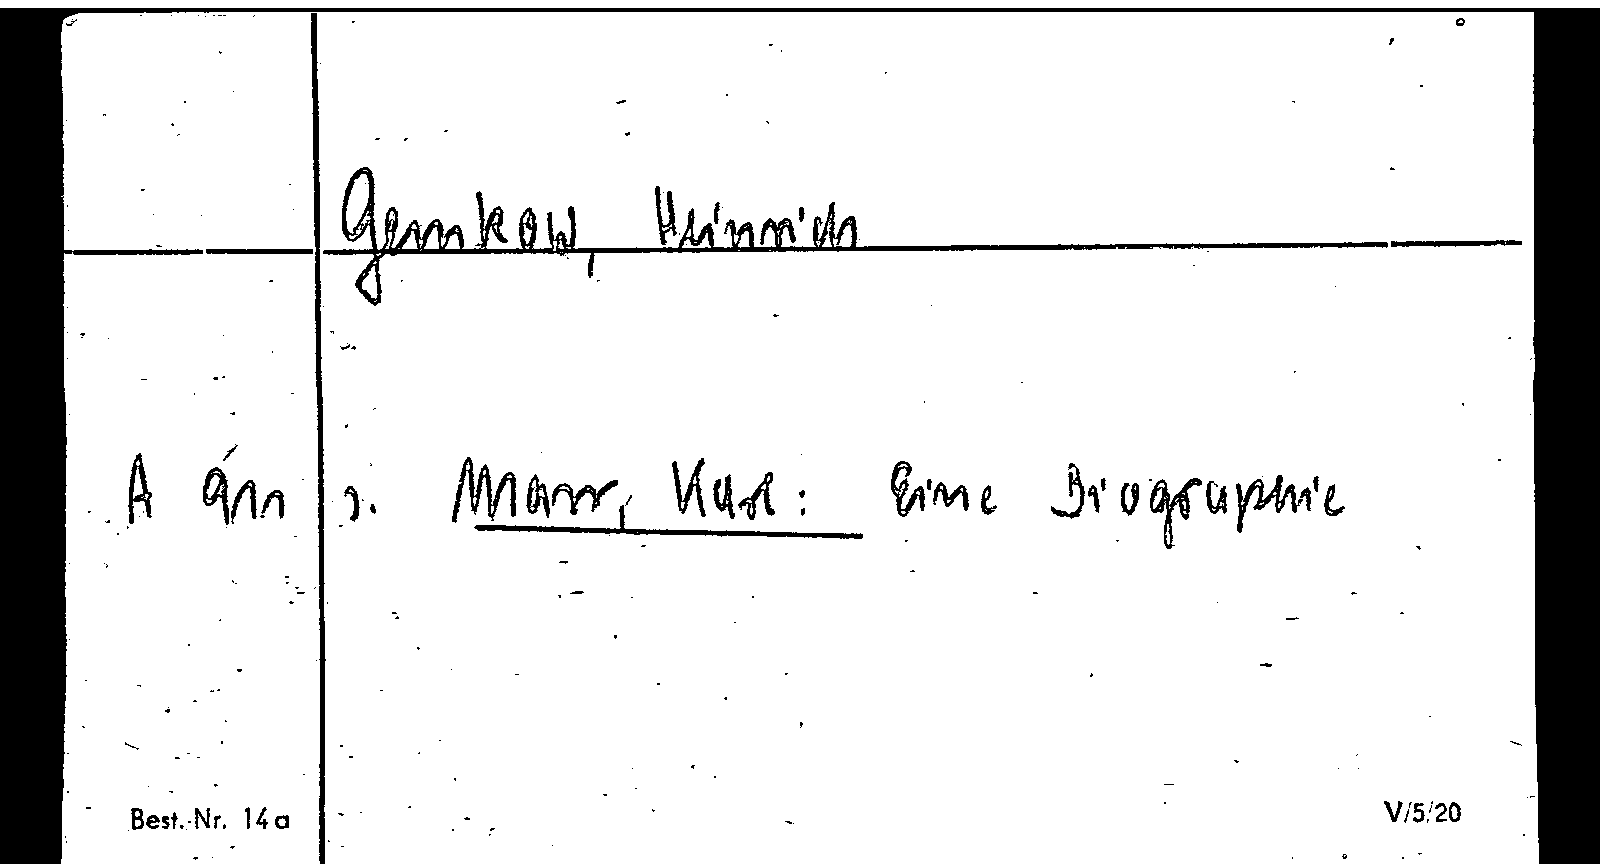 Gemkow, Heinrich
A án s. Marx, Karl: Eine Biographie
Best.-Nr. 14a V/5/20